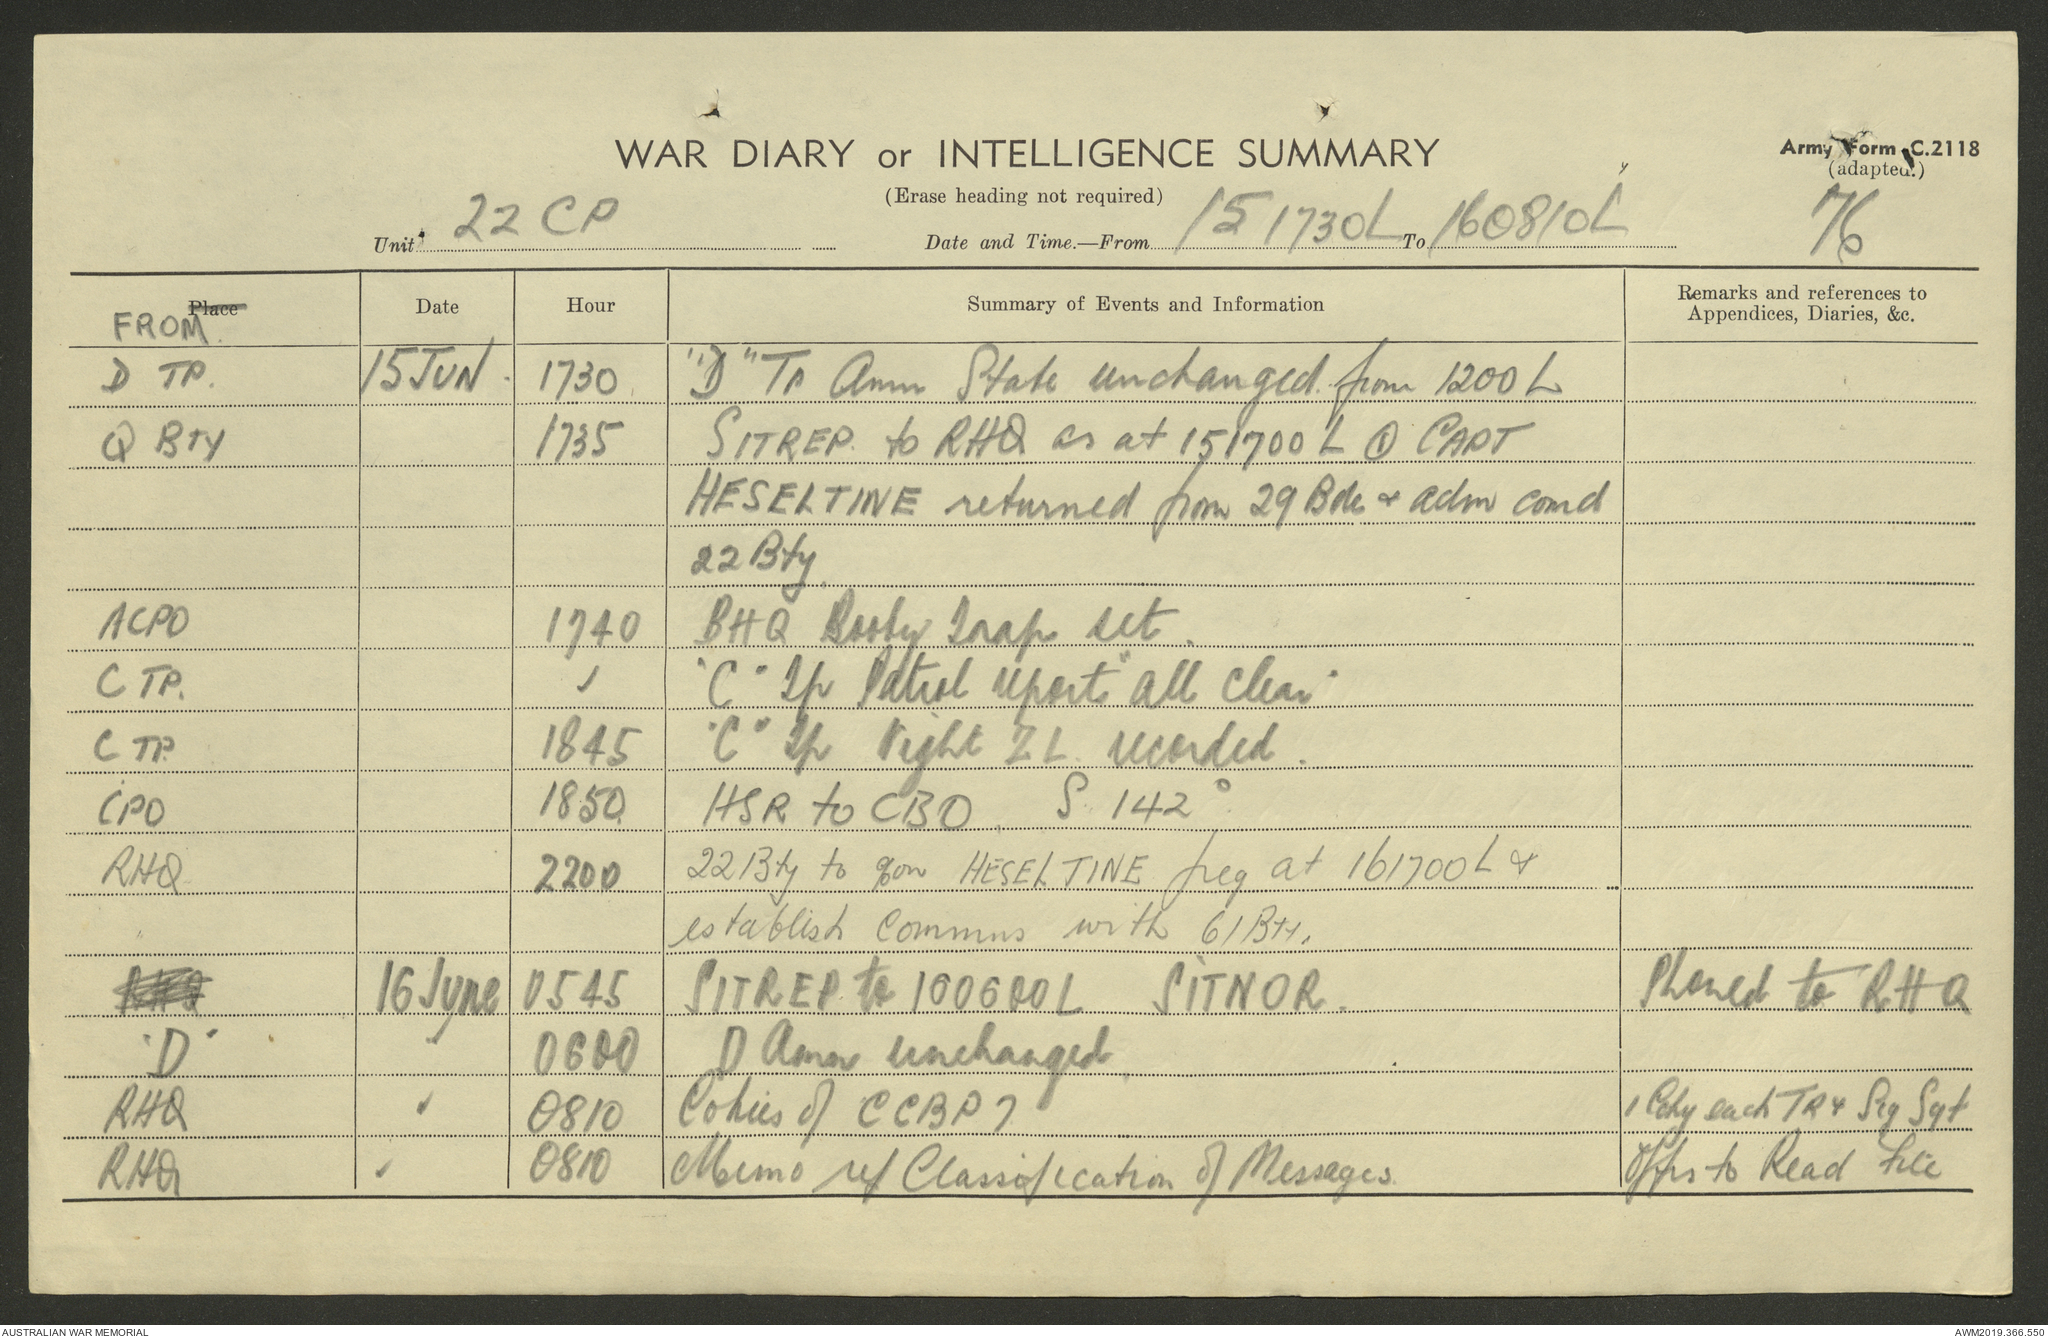 WAR DIARY or INTELLIGENCE SUMMARY
Army Form C.2118
(adapted.)
(Erase heading not required)
76
Unit 22 CP Date and Time.—From 151730L To 160810L
Place Date Hour Summary of Events and Information Remarks and references to Appendices, Diaries, &c.
FROM
D TP. 15 JUN. 1730 "D" Tp Amn State unchanged from 1200 L
Q BTY 1735 SITREP. to RHQ as at 151700 L ① CAPT
HESELTINE returned from 29 Bde & adm comd
22 Bty.
ACPO 1740 BHQ Booby Trap set.
C TP. ✓ "C" Tp Patrol reports "all clear"
C TP. 1845 "C" Tp Night ZL recorded.
CPO 1850 HSR to CBO. S 142°
RHQ 2200 22 Bty to HESELTINE freq at 161700L &
establish commns with 61 Bty.
RHQ 16 June 0545 SITREP to 160600L SITNOR. Phoned to RHQ
"D" " 0600 D Amn unchanged.
RHQ " 0810 Copies of CCBP 7 1 Copy each TP & Sig Sgt
RHQ " 0810 Memo ref Classification of Messages. Offrs to Read File
AUSTRALIAN WAR MEMORIAL
AWM2019.366.550